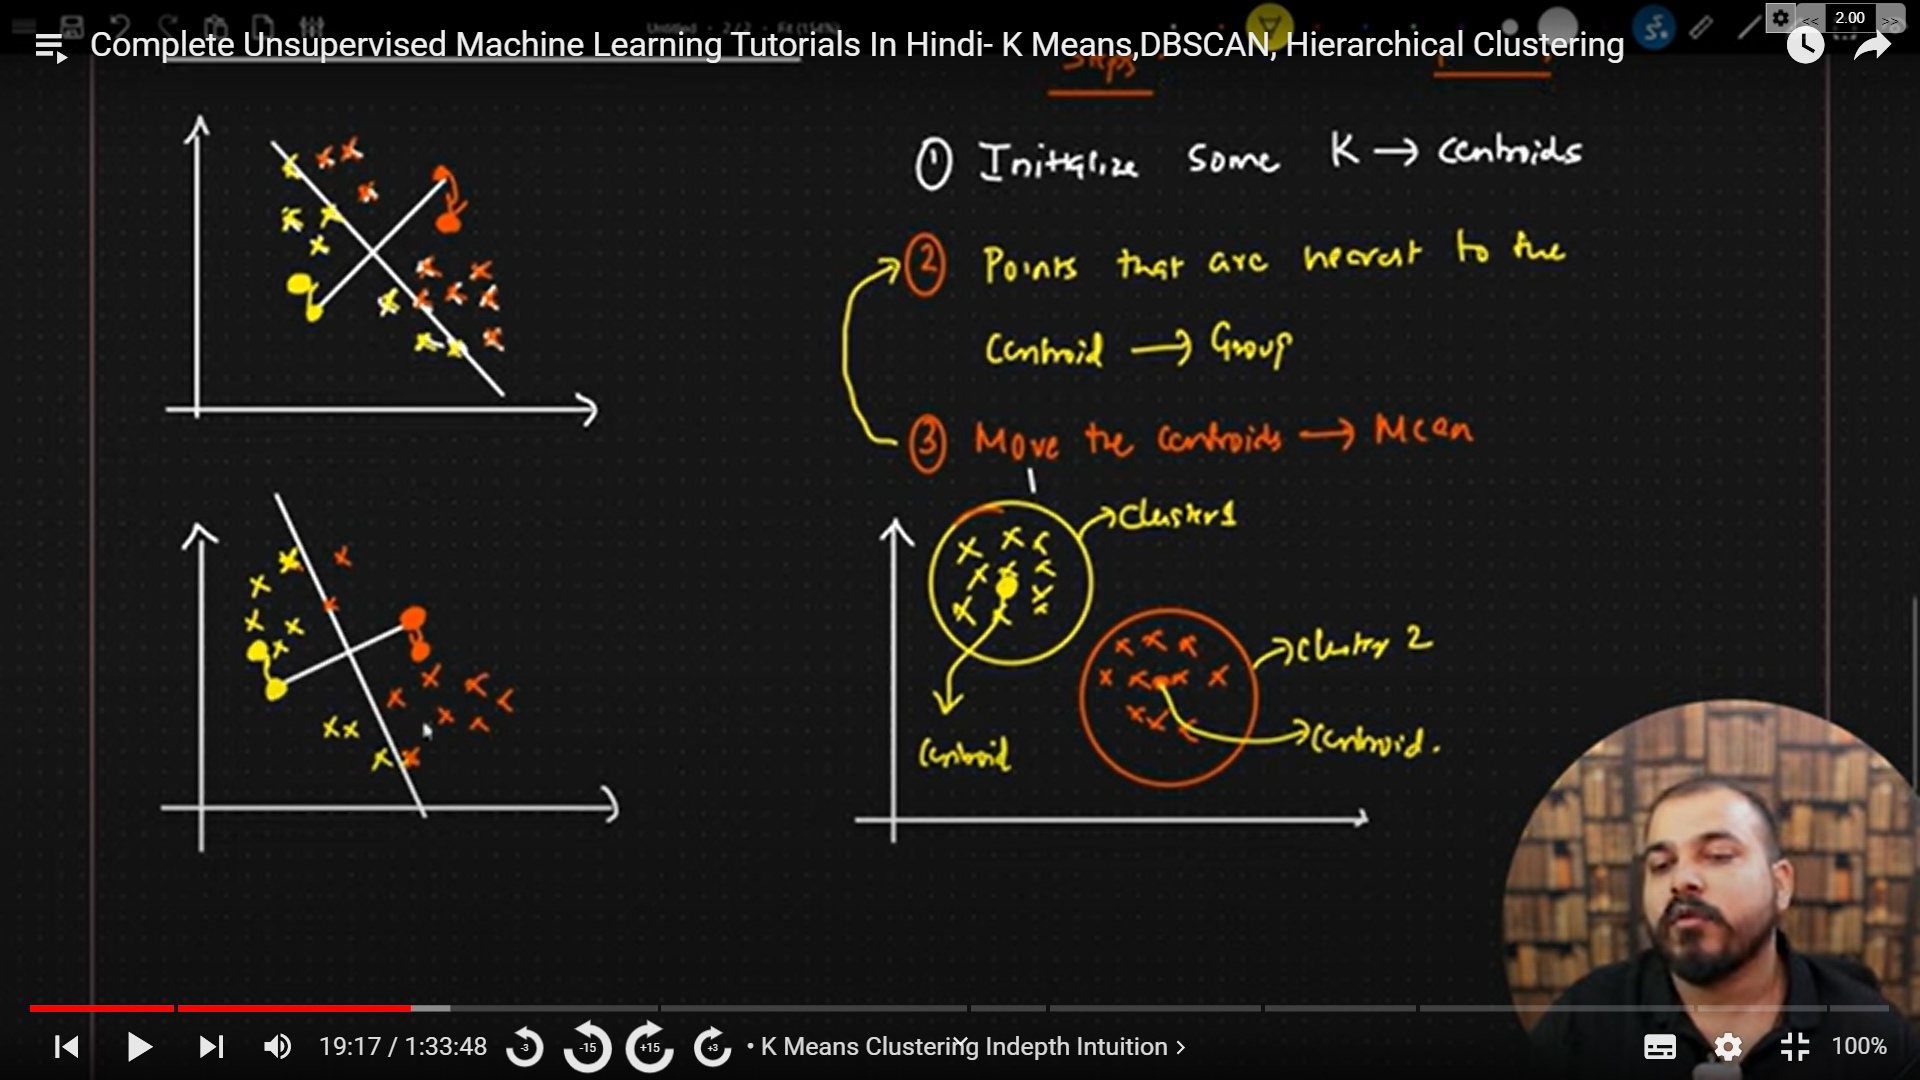 Complete Unsupervised Machine Learning Tutorials In Hindi- K Means,DBSCAN, Hierarchical Clustering
<< 2.00 >>
Steps
① Initialize some K → centroids
② Points that are nearest to the
Centroid → Group
③ Move the centroids → Mean
Cluster 1
Cluster 2
Centroid
Centroid.
19:17 / 1:33:48
-3
-15
+15
+3
• K Means Clustering Indepth Intuition >
100%